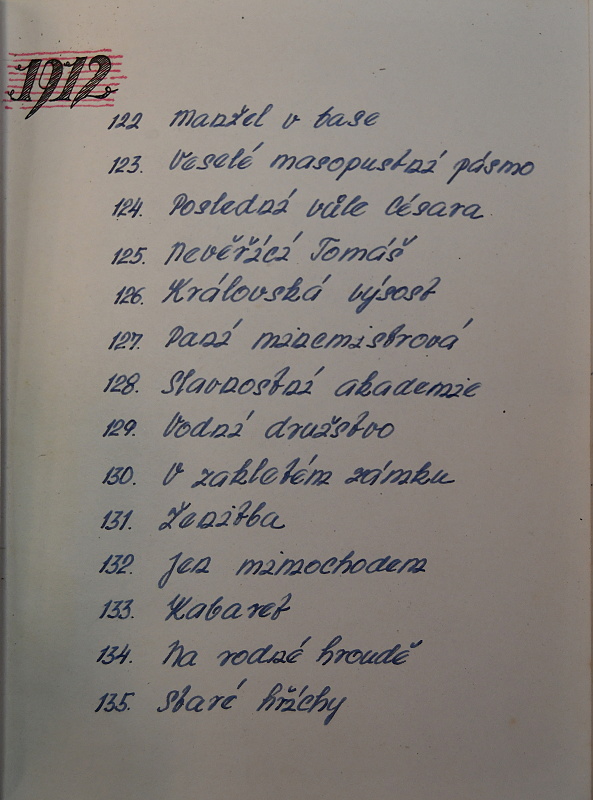 1912
122 Manžel v base
123. Veselé masopustní pásmo
124. Poslední vůle Césara
125. Nevěřící Tomáš
126. Královská výsost
127. Paní mincmistrová
128. Slavnostní akademie
129. Vodní družstvo
130. V zakletém zámku
131. Ženitba
132. Jen mimochodem
133. Kabaret
134. Na rodné hroudě
135. Staré hříchy